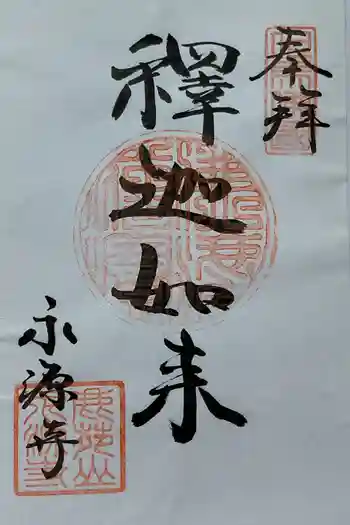 奉拜
釋迦如来
永源寺